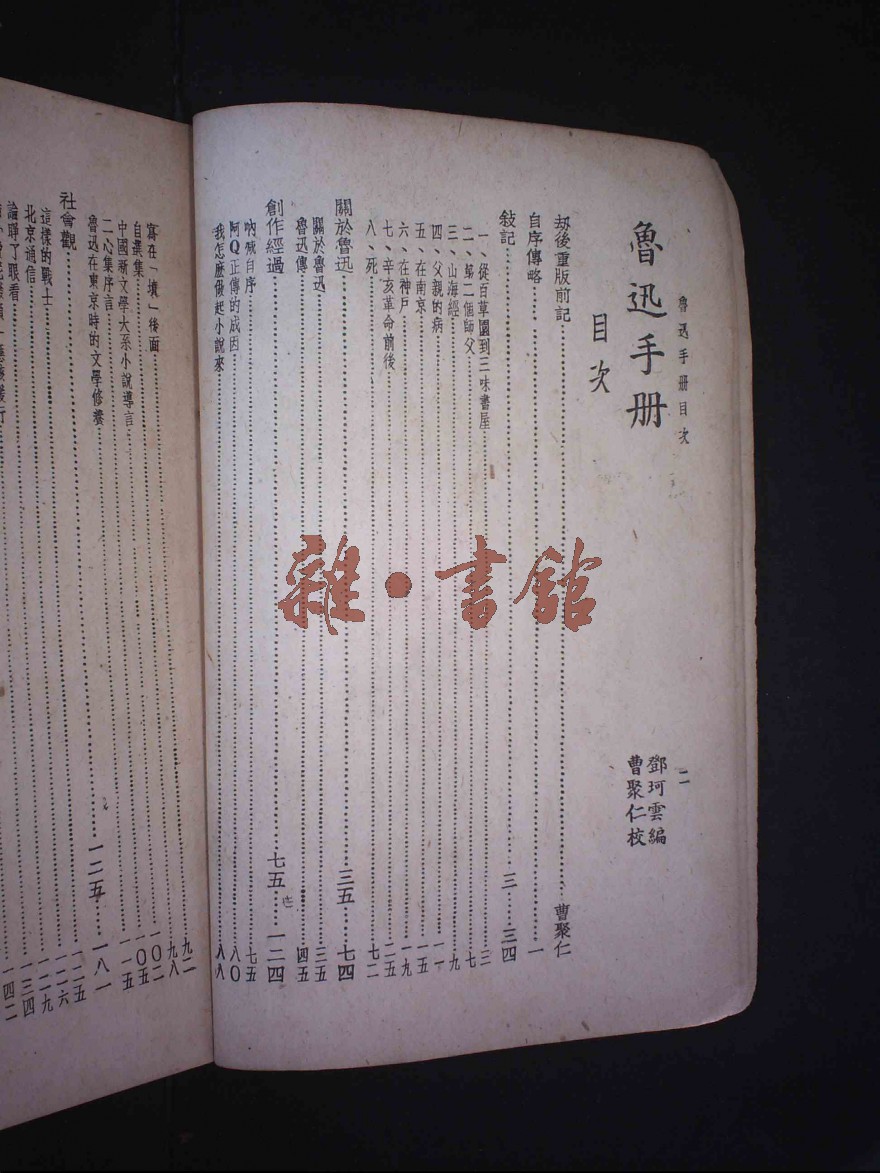 魯迅手册目次
二
魯迅手册
鄧珂雲編
曹聚仁校
目次
劫後重版前記……曹聚仁
自序傳略……一
敍記……三……三四
一、從百草園到三味書屋……三
二、第二個師父……七
三、山海經……九
四、父親的病……一一
五、在南京……一五
六、在神戶……一九
七、辛亥革命前後……二五
八、死……七二
關於魯迅……三五……七四
關於魯迅……三五
魯迅傳……四五
創作經過……七五……一二四
吶喊自序……七五
阿Q正傳的成因……八〇
我怎麼做起小說來……八八
寫在「墳」後面……九二
自選集……九八
中國新文學大系小說導言……一〇二
二心集序言……一〇五
魯迅在東京時的文學修養……一一五
社會觀……一二五……一八一
這樣的戰士
北京通信
論睜了眼看
雜·書館